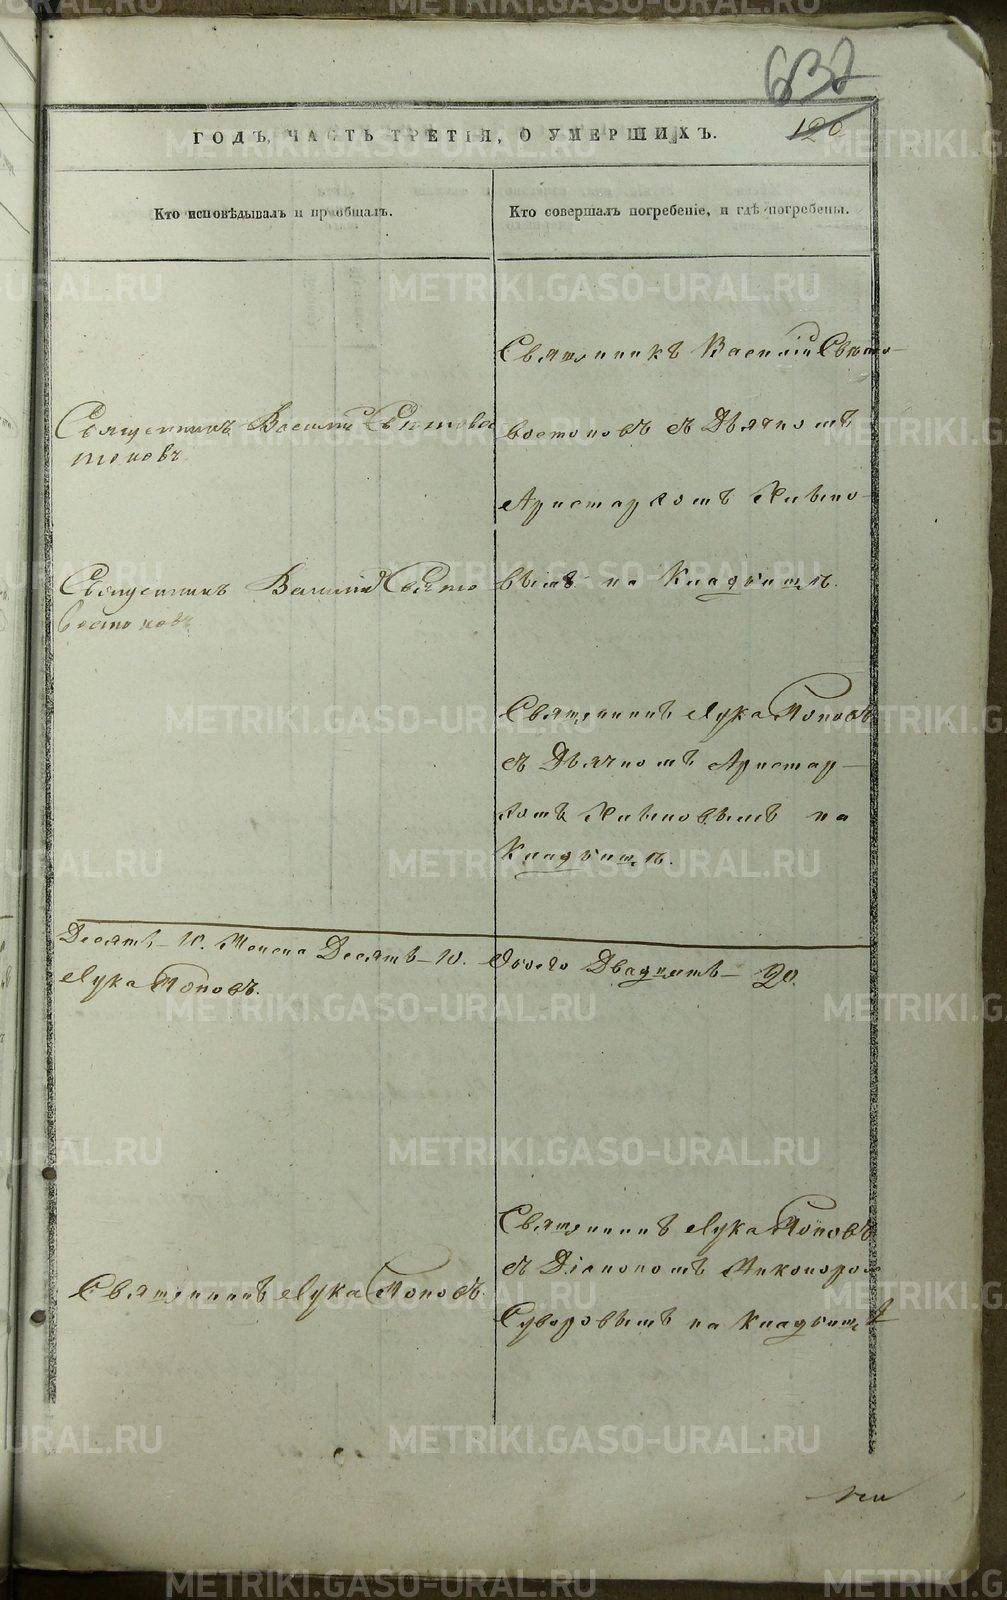 632
120
ГОДЪ, ЧАСТЬ ТРЕТІЯ, О УМЕРШИХЪ.
Кто исповѣдывалъ и пріобщалъ.
Кто совершалъ погребеніе, и гдѣ погребены.
Священникъ Василій Свѣтово
стоковъ
Священникъ Василій Свѣто
востоковъ
Священникъ Василій Свѣто-
востоковъ съ Дьячкомъ
Аристархомъ
вымъ на Кладбищѣ.
Священникъ Лука Поповъ
съ Дьячкомъ Аристар-
хомъ на
Кладбищѣ.
Десять - 10. Женска Десять - 10. Обоего Двадцать - 20.
Лука Поповъ.
Священникъ Лука Поповъ.
Священникъ Лука Поповъ
съ Діакономъ Никифоро
Суворовымъ на кладбищѣ
METRIKI.GASO-URAL.RU